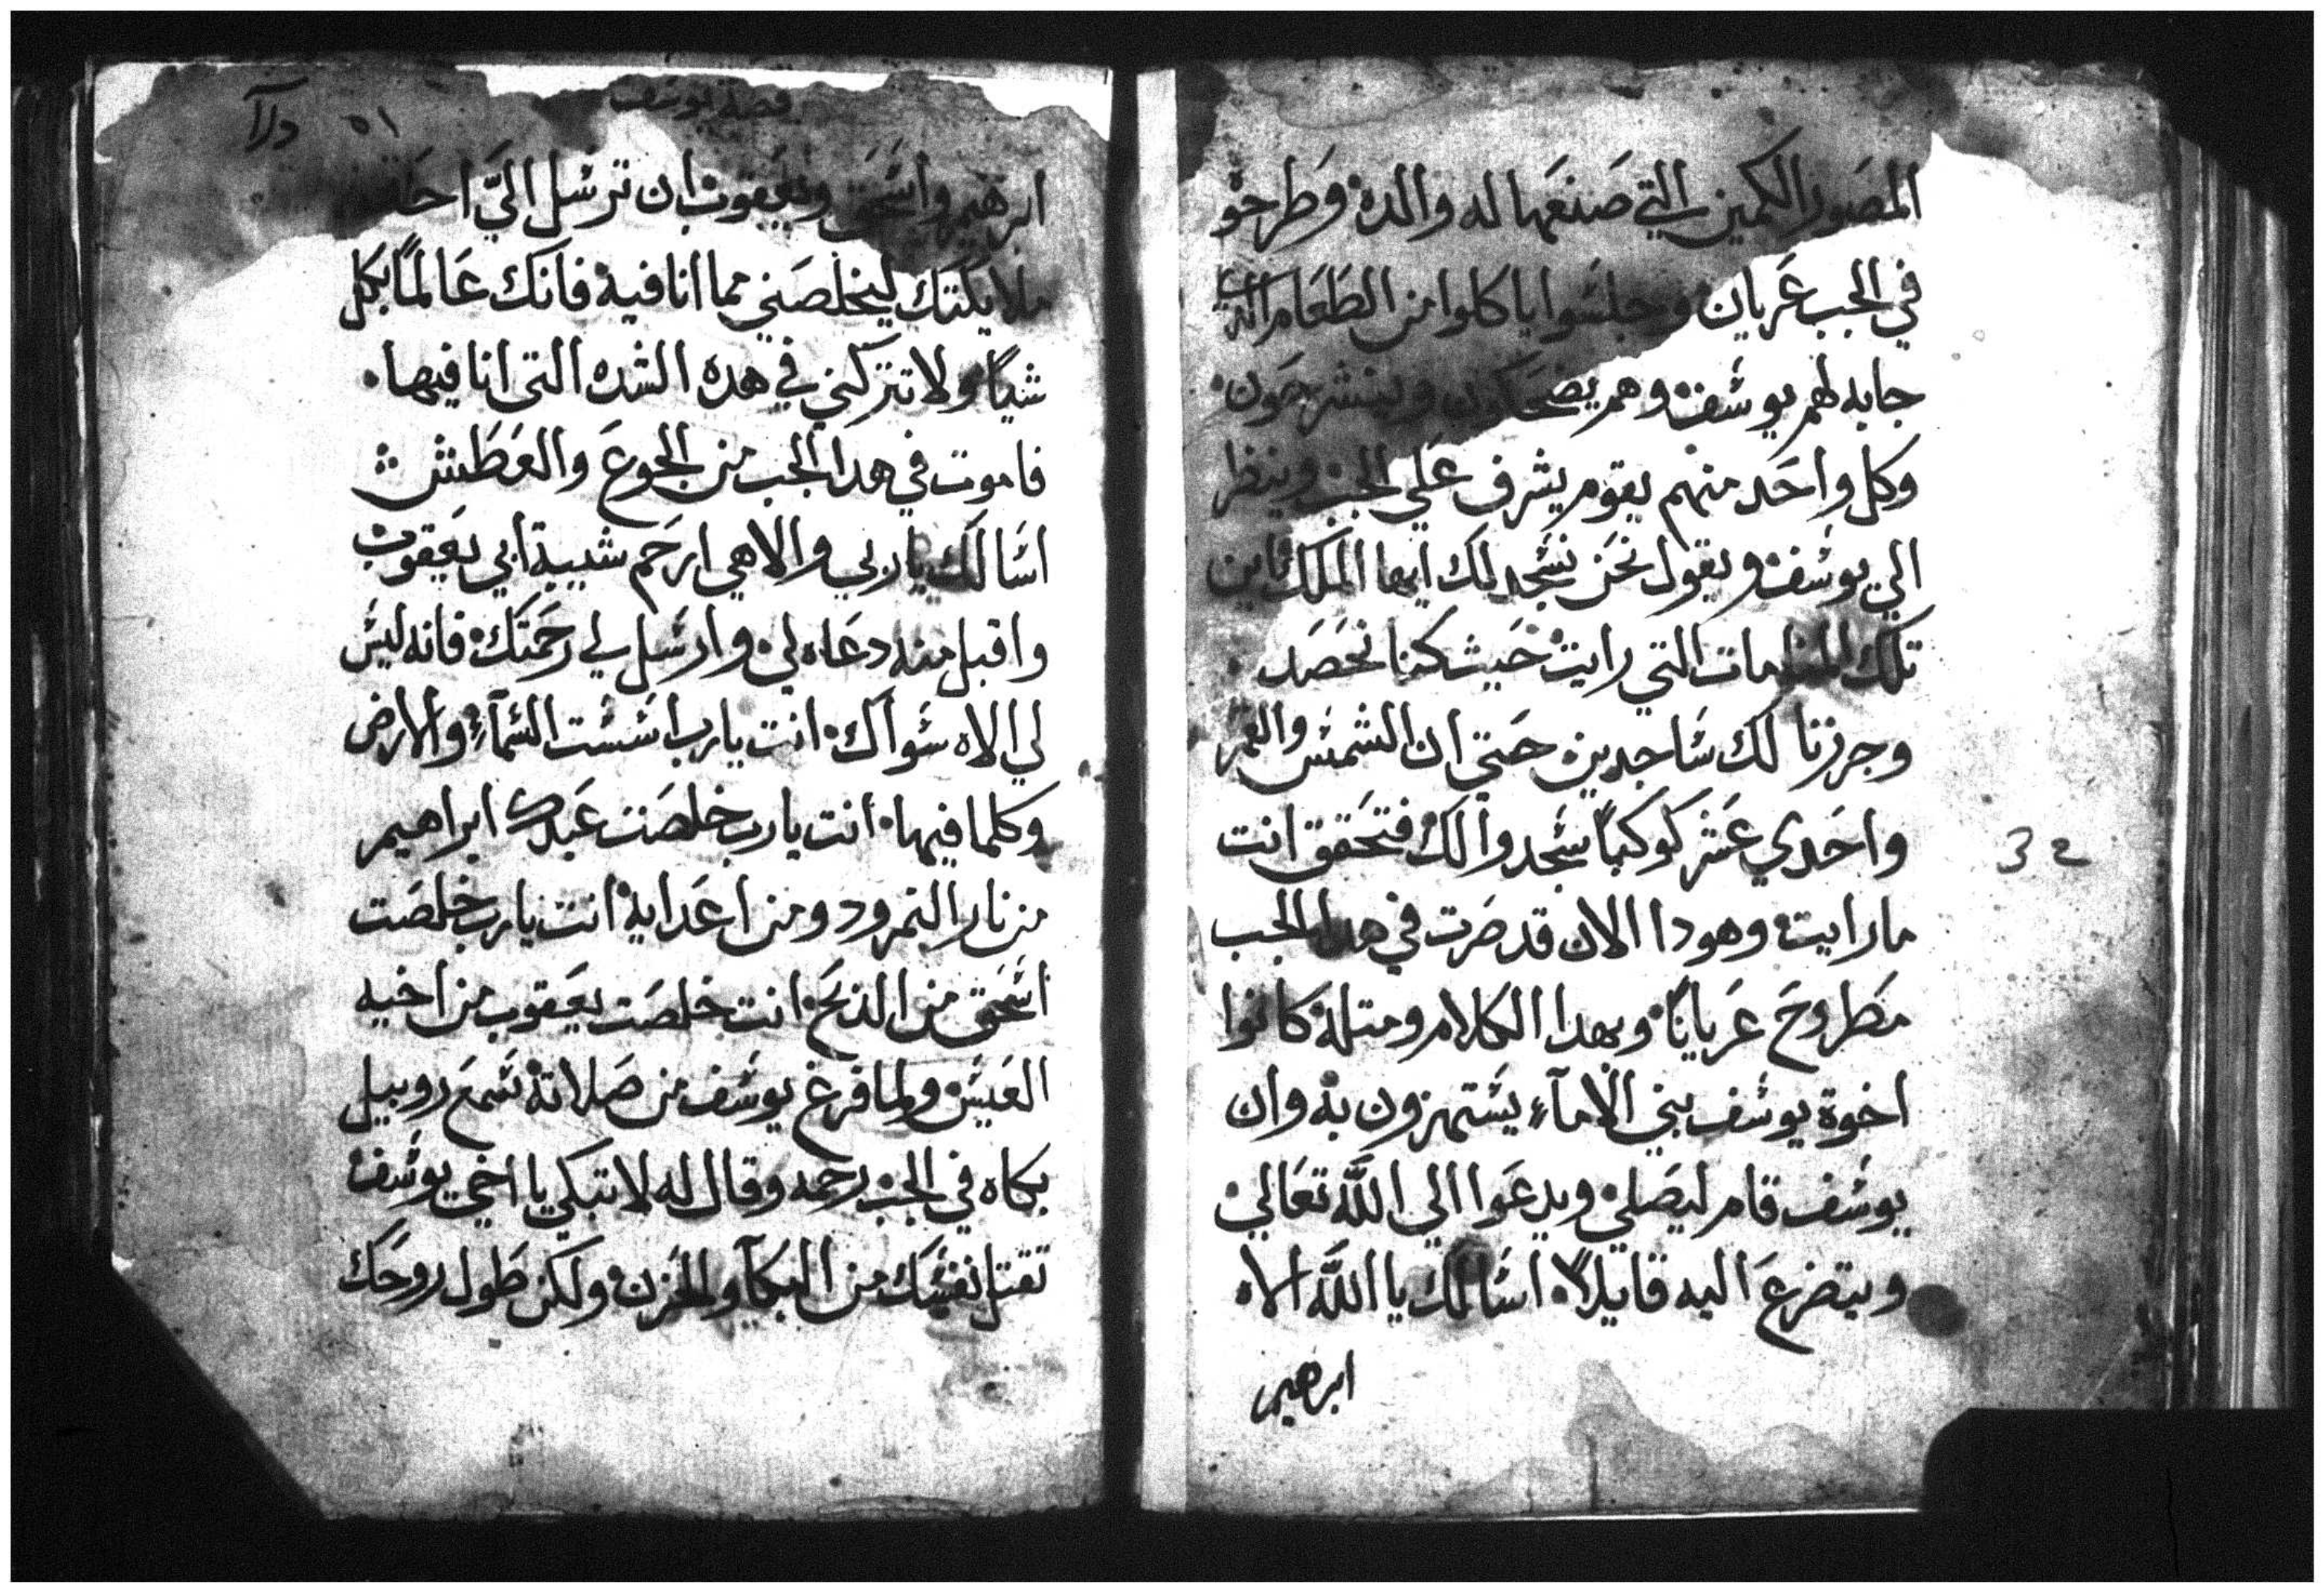 المصور الكمين التي صنعها له والده وطرحو
في الجب عريان وجلسوا ياكلوا من الطعام الذي
جابه لهم يوسف وهم يضحكون وينشرحون
وكل واحد منهم يقوم يشرف علي الجب وينظر
الي يوسف ويقول نحن نسجد لك ايها الملك فاين
تلك المنامات التي رايت حيث كنا نحصد
وجرزنا لك ساجدين حتي ان الشمس والقمر
واحدي عشر كوكباً سجدوا لك فتحقق انت
ما رايت وهودا الان قد صرت في هدا الجب
مطروح عرياناً وبهدا الكلام ومتله كانوا
اخوة يوسف بني الامآء يستهزون به وان
يوسف قام ليصلي ويدعوا الي اللّه تعالي
ويتضرع اليه قايلاً اسالك يا اللّه الاه
ابرهيم
32
قصة يوسف
٥١
ابرهيم واسحق ويعقوب ان ترسل اليّ احد
ملايكتك ليخلصني مما انا فيه فانك عالماً بكل
شياً ولا تتركني في هده الشده التي انا فيها
فاموت في هدا الجب من الجوع والعطش
اسالك يا ربي والاهي ارحم شيبة ابي يعقوب
واقبل منه دعاه لي وارسل لي رحمتك فانه ليس
لي الاه سواك انت يا رب اسست السمآء والارض
وكلما فيها انت يا رب خلصت عبدك ابراهيم
من نار النمرود ومن اعدايه انت يا رب خلصت
اسحق من الدبح انت خلصت يعقوب من اخيه
العيس ولما فرغ يوسف من صلاته سمع روبيل
بكاه في الجب رحمه وقال له لا تبكي يا اخي يوسف
تقتل نفسك من البكآ والحزن ولكن طول روحك